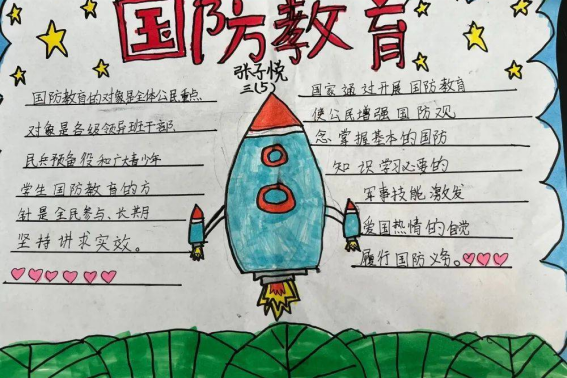 国防教育
张子悦
三(5)
国防教育的对象是全体公民重点
对象是各级领导班干部
民兵预备役和广大青少年
学生国防教育的方
针是全民参与、长期
坚持讲求实效。
国家通过开展国防教育
使公民增强国防观
念掌握基本的国防
知识学习必要的
军事技能激发
爱国热情的自觉
履行国防义务。